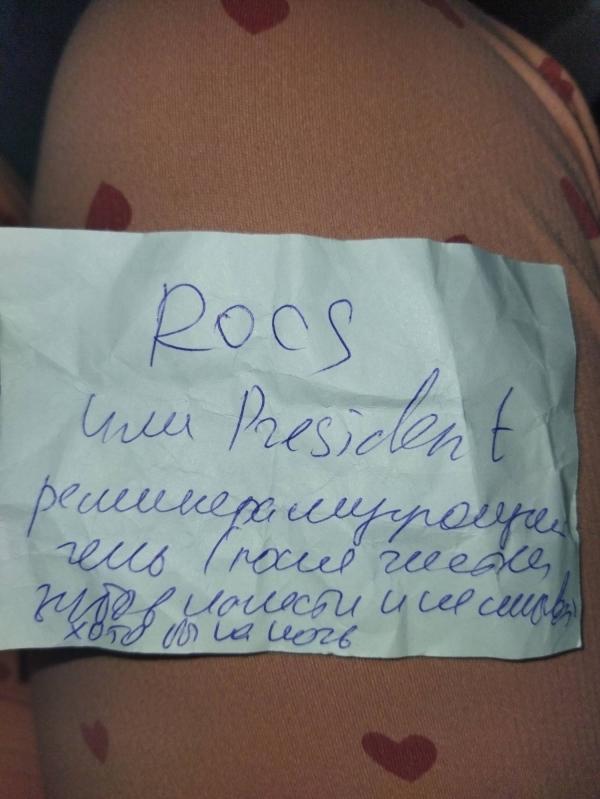 ROCS
или President
реминерализирующий
гель (после чистки
зубов нанести и не смывать
хотя бы на ночь